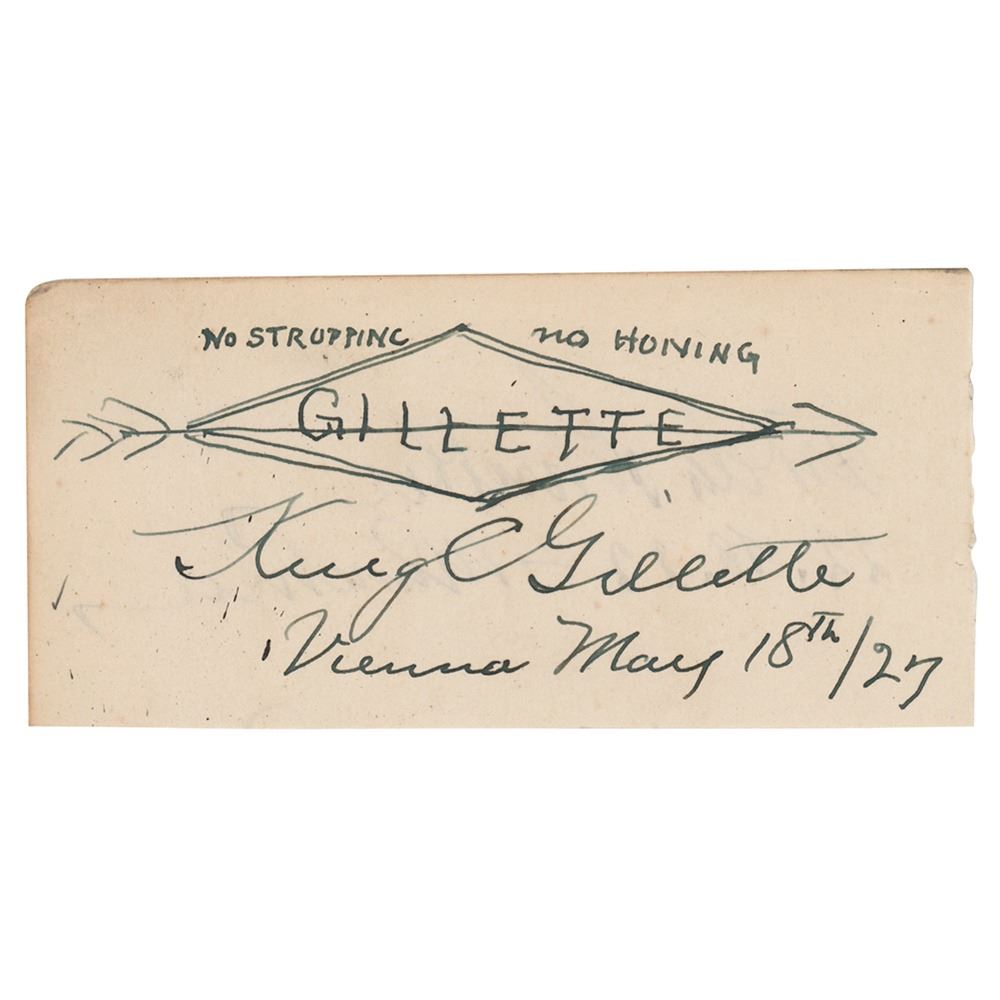 NO STROPPING NO HONING
GILLETTE
King C Gillette
Vienna May 18th/27